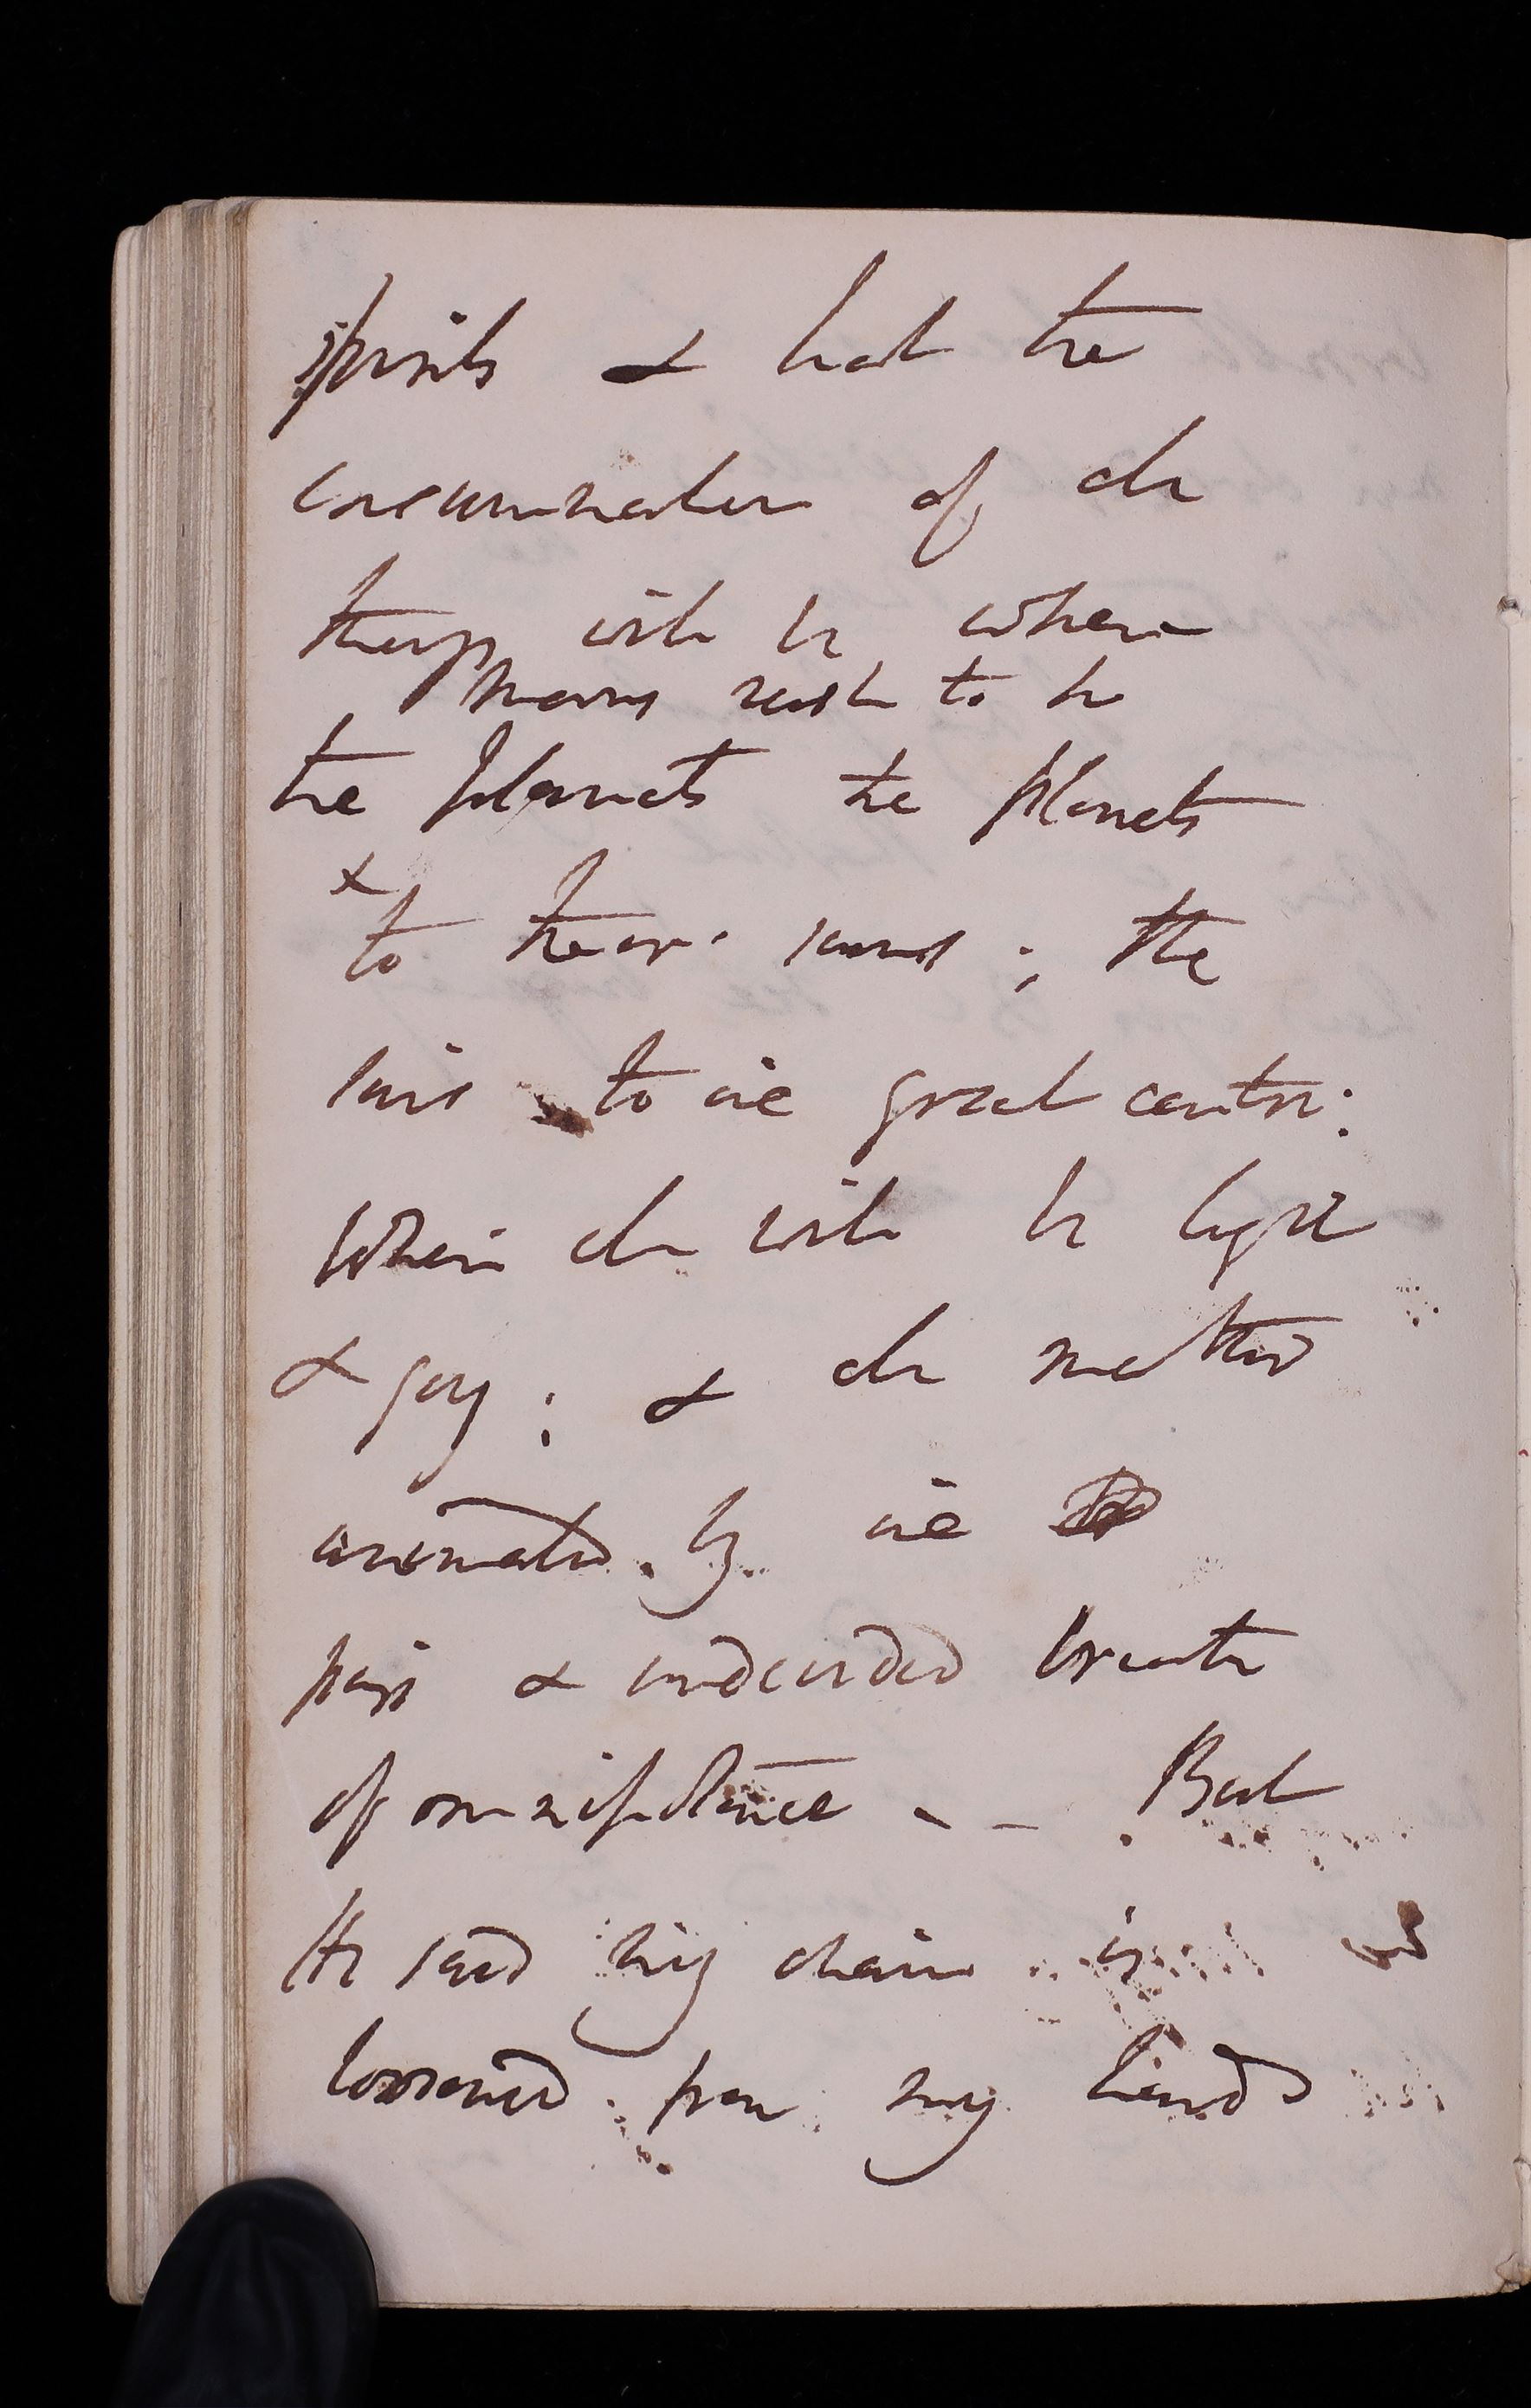 spirits & that the
consummation of all
things will be when
moons rush to the
the planets the planets
&
to their suns ; the
suns to one great centre:
When all will be light
& joy ; & all matter
animated by one
pure & undivided breath
of omnipotence - - But
He said thy chain is not
loosened from my hands